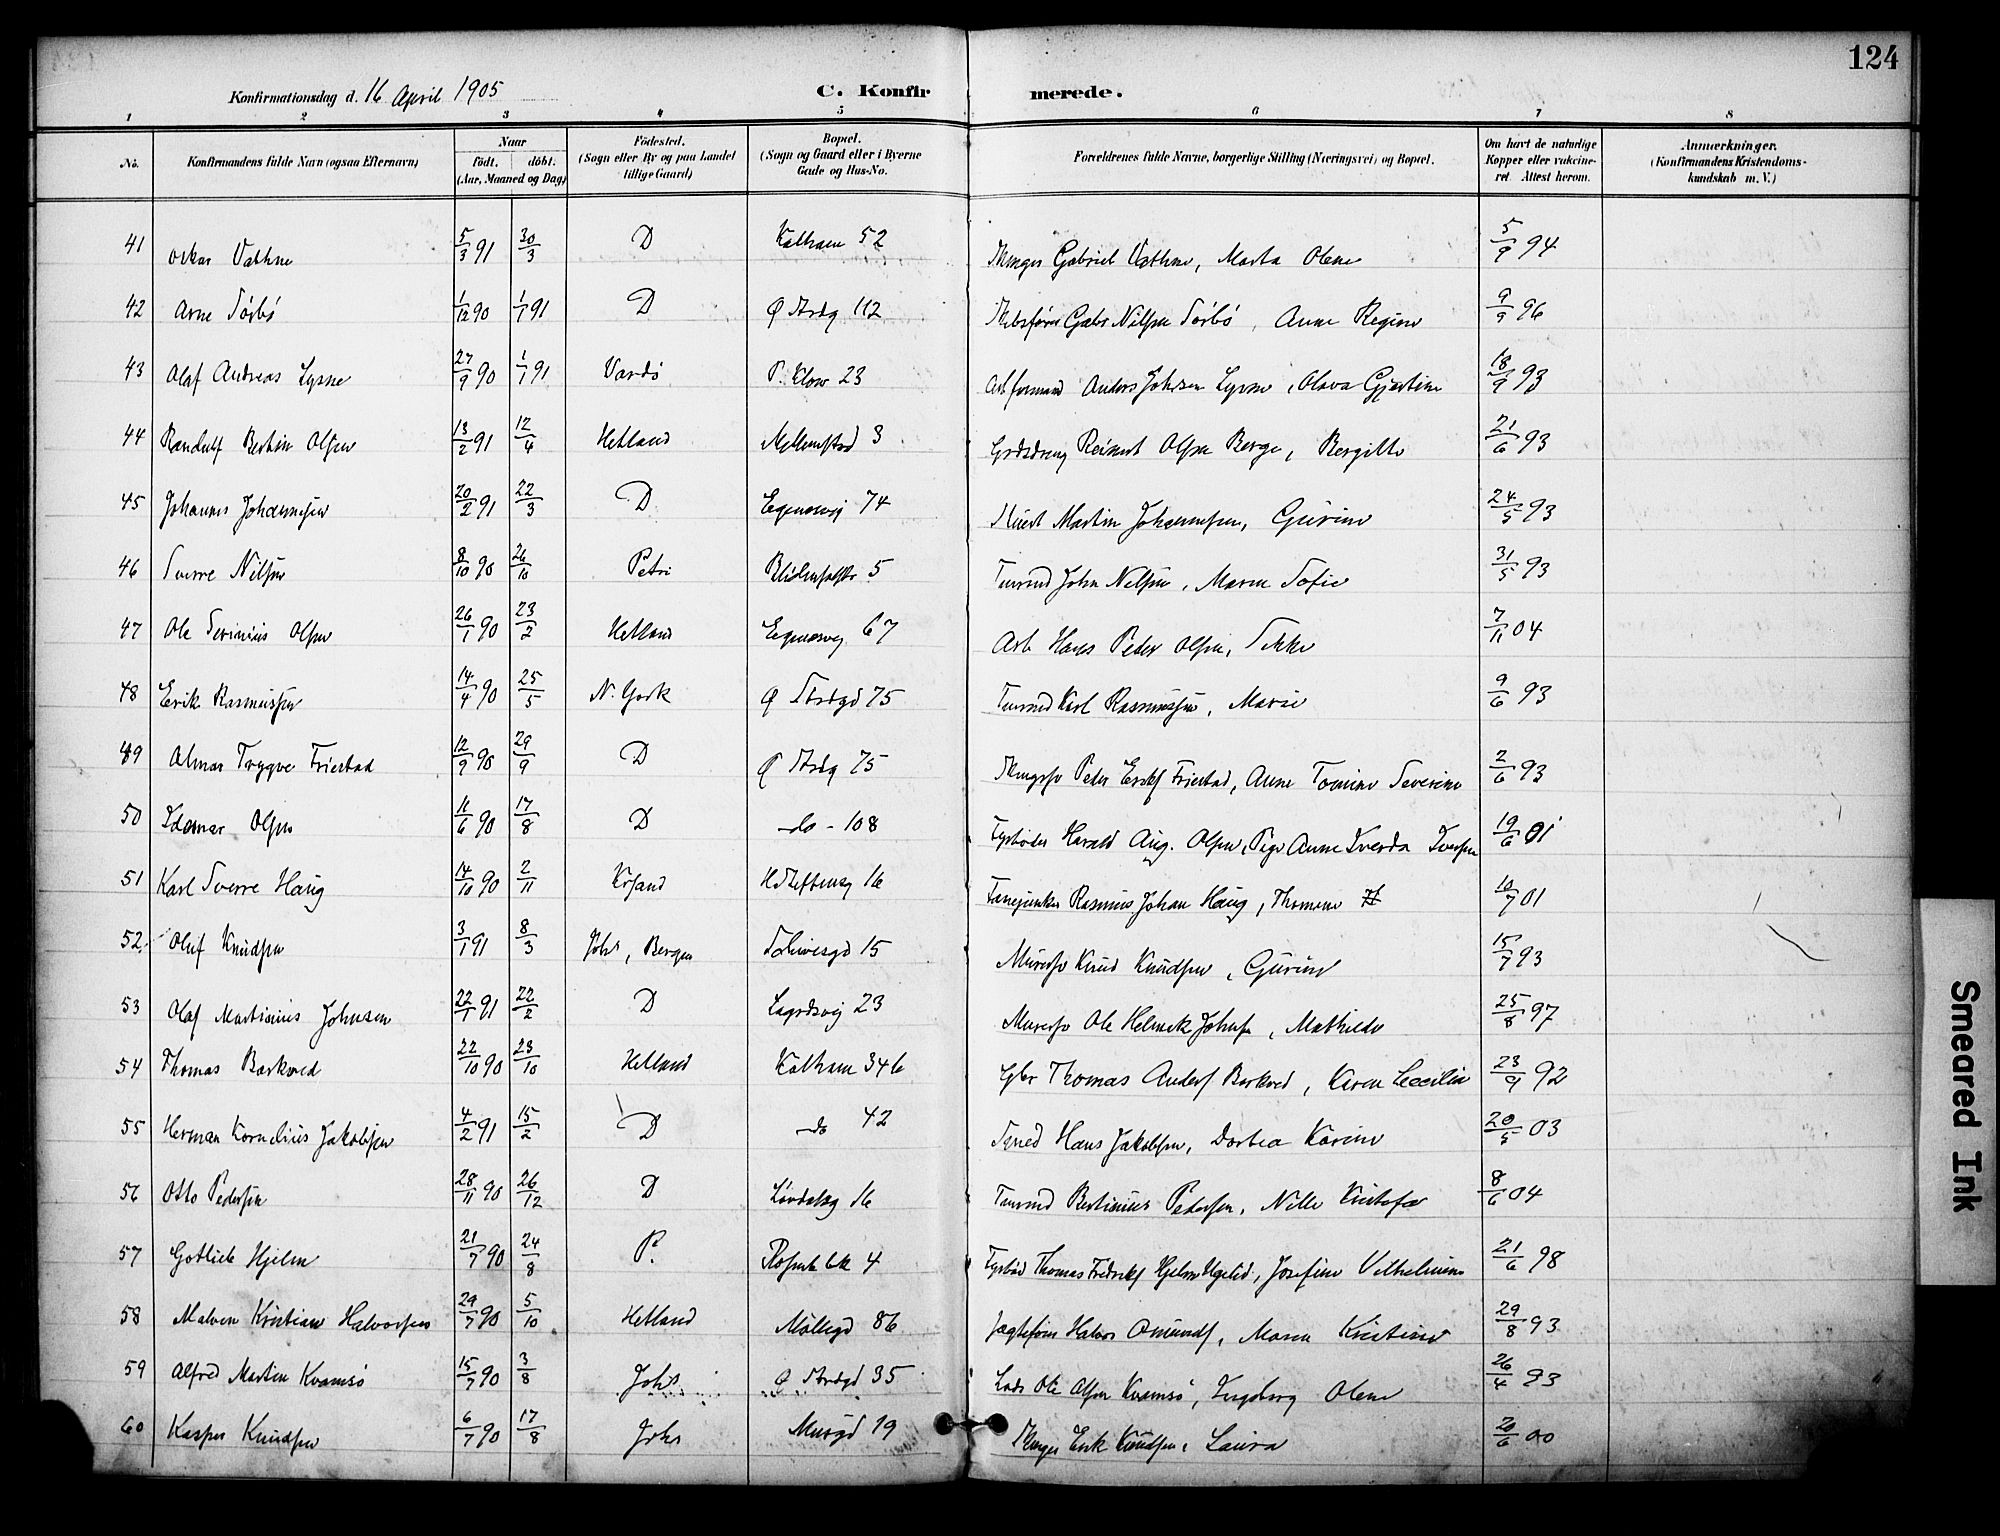 124
Konfirmationsdag d. 16 April 1905 C. Konfirmerede.
1 2 3 4 5 6 7 8
No. Konfirmandens fulde Navn (ogsaa Efternavn) Naar født. døbt. (Aar, Maaned og Dag) Födested. (Sogn eller By og paa Landet tillige Gaard) Bopæl. (Sogn og Gaard eller i Byerne Gade og Hus-No. Forældrenes fulde Navne, borgerlige Stilling (Næringsvei) og Bopæl. Om havt de naturlige Kopper eller vakcineret. Attest herom. Anmærkninger. (Konfirmandens Kristendomskundskab m. V.)
41 Oskar Vathne 5/3 91 30/3 D Kalham 52 Gabriel Vathne, Marta Olene 5/9 94
42 Arne Sørbø 1/12 90 1/1 91 D Ø Strdg 112 Gabr Nilsen Sørbø, Anne Regine 9/9 96
43 Olaf Andreas Lysne 27/9 90 1/1 91 Vardø P. Klow 23 Arbformand Anders Johnsen Lysne, Olava Gjertine 18/9 93
44 Randulf Bertin Olsen 13/2 91 12/4 Hetland 3 Reinert Olsen Berge, Bergitte 21/6 93
45 Johannes Johannesen 20/2 91 22/3 D Egenesvej 74 Martin Johannesen, Gurine 24/5 93
46 Sverre Nilsen 8/10 90 26/10 Petri 5 Tmrmd John Nilsen, Maren Sofie 31/5 93
47 Ole Severinius Olsen 26/1 90 23/2 Hetland Egenesvej 67 Arb Hans Peder Olsen, Sikke 7/11 04
48 Erik Rasmussen 14/4 90 25/5 N. York Ø Strdgd 75 Tmrmd Karl Rasmussen, Marie 9/6 93
49 Almar Trygve Friestad 12/9 90 29/9 D Ø Strdg 75 Peder Eriksf Friestad, Anne Tomine Severine 2/6 93
50 Idemar Olsen 11/6 90 17/8 D do - 108 Fyrbøder Harald Aug. Olsen, Pige Anne Sverda Iversen 19/6 01
51 Karl Sverre Haug 14/10 90 2/11 Krsand H Steffensg 16 Fanejunker Rasmus Johan Haug, Thomene H 10/7 01
52. Oluf Knudsen 3/1 91 8/3 Johs, Bergen 15 Murersv Knud Knudsen, Gurine 15/7 93
53 Olaf Martinius Johnsen 22/1 91 22/2 D Lagrdsvej 23 Murersv Ole Helmik Johnsen, Mathilde 25/8 97
54 Thomas Barkved 22/10 90 23/10 Hetland Kalham 34b Thomas Andersf Barkved, Karen Cecilia 23/9 92
55 Herman Kornelius Jakobsen 4/2 91 15/2 D do 42 Smed Hans Jakobsen, Dortea Karine 20/5 03
56 Otto Pedersen 28/11 90 26/12 D Løvdalsg 16 Tmrmd Bertinius Pedersen, Nille Kristofa 8/6 04
57 Gotlieb Hjelm 21/7 90 24/8 P. 4 Fyrbød Thomas Fredriksf Hjelm, Josefine Vilhelmine 21/6 98
58 Malvin Kristian Halvorsen 29/7 90 5/10 Hetland Møllegd 86 Jagtefører Halvor Omundsf, Maren Kristine 29/8 93
59 Alfred Martin Kvamsø 15/7 90 3/8 Johs Ø Strdgd 35 Lods Ole Olsen Kvamsø, Ingeborg Olene 26/4 93
60 Kasper Knudsen 6/7 90 17/8 Johs Musegd 19 Erik Knudsen, Laura 20/6 00
Smeared Ink